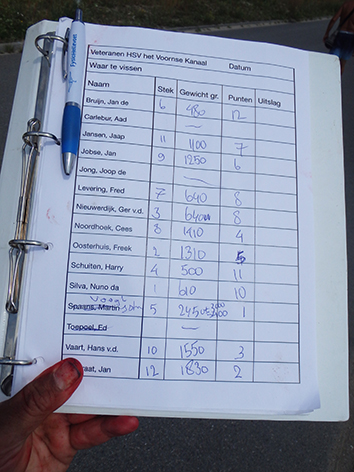 Veteranen HSV het Voornse Kanaal Datum
Waar te vissen
Naam Stek Gewicht gr. Punten Uitslag
Bruijn, Jan de 6 480 12
Carlebur, Aad —
Jansen, Jaap 11 1100 7
Jobse, Jan 9 1250 6
Jong, Joop de —
Levering, Fred 7 640 8
Nieuwerdijk, Ger v.d. 3 640 8
Noordhoek, Cees 8 1410 4
Oosterhuis, Freek 2 1310 5
Schuiten, Harry 4 500 11
Silva, Nuno da 1 610 10
Spaans, Martin 5 1
Toepoel, Ed —
Vaart, Hans v.d. 10 1550 3
aat, Jan 12 1830 2